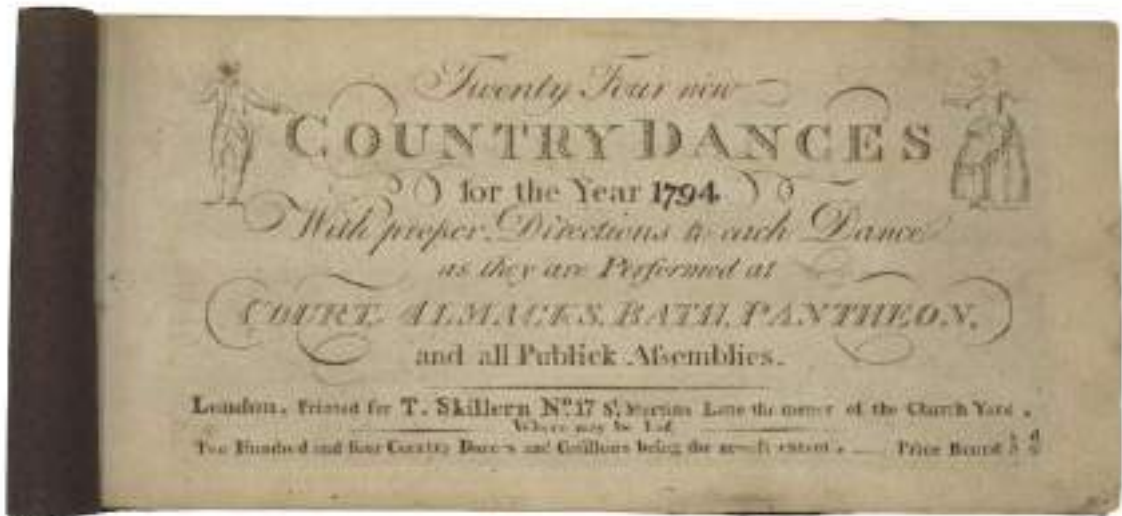 Twenty Four new
COUNTRY DANCES
for the Year 1794
With proper Directions to each Dance
as they are Performed at
COURT, ALMACKS, BATH, PANTHEON,
and all Publick Aſsemblies.
London. Printed for T. Skillern No. 17 St. Martins Lane the corner of the Church Yard.
Where may be had
Two Hundred and four Country Dances and Cotillons being the extant. Price Bound